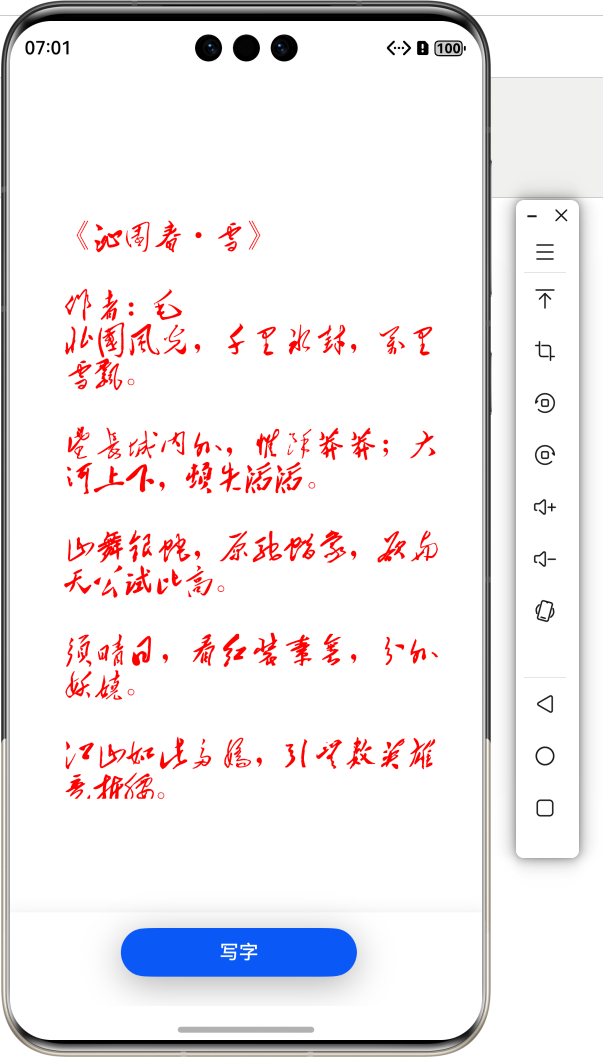 07:01
100
《沁园春·雪》
作者：毛
北國風光，千里冰封，万里
雪飘。
望长城内外，惟余莽莽；大
河上下，顿失滔滔。
山舞银蛇，原驰蜡象，欲与
天公试比高。
须晴日，看红装素裹，分外
妖娆。
江山如此多娇，引无数英雄
竞折腰。
写字